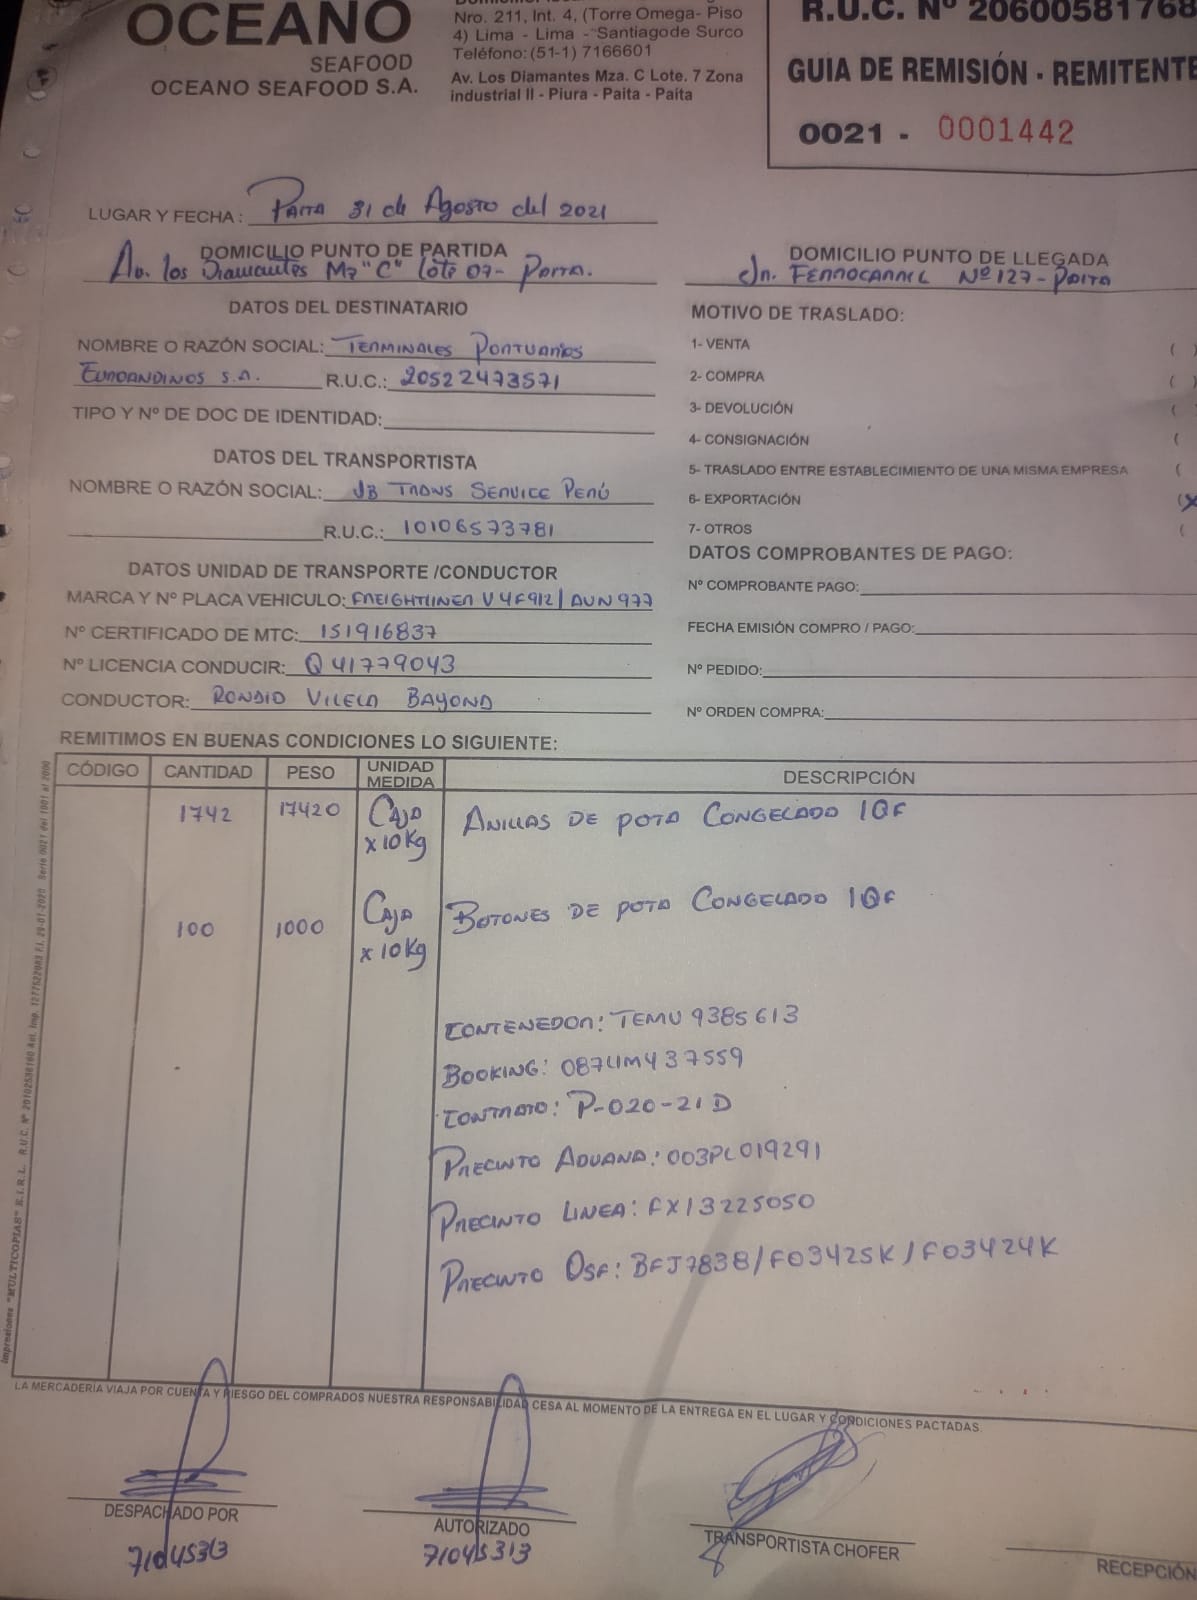 OCEANO
SEAFOOD
OCEANO SEAFOOD S.A.
Nro. 211, Int. 4, (Torre Omega- Piso
4) Lima - Lima - Santiagode Surco
Teléfono: (51-1) 7166601
Av. Los Diamantes Mza. C Lote. 7 Zona
industrial II - Piura - Paita - Paita
R.U.C. Nº 20600581768
GUIA DE REMISIÓN - REMITENTE
0021 - 0001442
LUGAR Y FECHA: Paita 31 de Agosto del 2021
DOMICILIO PUNTO DE PARTIDA
Av. los Diamantes Mz "C" lote 07- Paita.
DOMICILIO PUNTO DE LLEGADA
Jn. Ferrocarril Nº 127 - Paita
DATOS DEL DESTINATARIO
NOMBRE O RAZÓN SOCIAL: Terminales Portuarios
Euroandinos S.A. R.U.C.: 20522473571
TIPO Y Nº DE DOC DE IDENTIDAD:
DATOS DEL TRANSPORTISTA
NOMBRE O RAZÓN SOCIAL: JB Trans Service Perú
R.U.C.: 10106573781
DATOS UNIDAD DE TRANSPORTE /CONDUCTOR
MARCA Y Nº PLACA VEHICULO: Freightliner V4F912/AUN977
Nº CERTIFICADO DE MTC: 151916837
Nº LICENCIA CONDUCIR: Q41779043
CONDUCTOR: Vilela Bayona
MOTIVO DE TRASLADO:
1- VENTA (
2- COMPRA ( )
3- DEVOLUCIÓN (
4- CONSIGNACIÓN (
5- TRASLADO ENTRE ESTABLECIMIENTO DE UNA MISMA EMPRESA (
6- EXPORTACIÓN (X
7- OTROS (
DATOS COMPROBANTES DE PAGO:
Nº COMPROBANTE PAGO:
FECHA EMISIÓN COMPRO / PAGO:
Nº PEDIDO:
Nº ORDEN COMPRA:
REMITIMOS EN BUENAS CONDICIONES LO SIGUIENTE:
CÓDIGO CANTIDAD PESO UNIDAD MEDIDA DESCRIPCIÓN
1742 17420 Caja x 10Kg Anillas de pota Congelado IQF
100 1000 Caja x 10Kg Botones de pota Congelado IQF
Contenedor: TEMU 9385613
Booking: 087LIM437559
Contrato: P-020-21D
Precinto Aduana: 003PL019291
Precinto Linea: FX13225050
Precinto Osf: BFJ7838/F03425K/F03424K
Impresiones "MULTICOPIAS" E.I.R.L. R.U.C. Nº 20102536160 Aut. Imp. 1277522083 F.I. 29-01-2020 Serie 0021 del 1001 al 2000
LA MERCADERÍA VIAJA POR CUENTA Y RIESGO DEL COMPRADOS NUESTRA RESPONSABILIDAD CESA AL MOMENTO DE LA ENTREGA EN EL LUGAR Y CONDICIONES PACTADAS.
DESPACHADO POR
71045313
AUTORIZADO
71045313
TRANSPORTISTA CHOFER
RECEPCIÓN